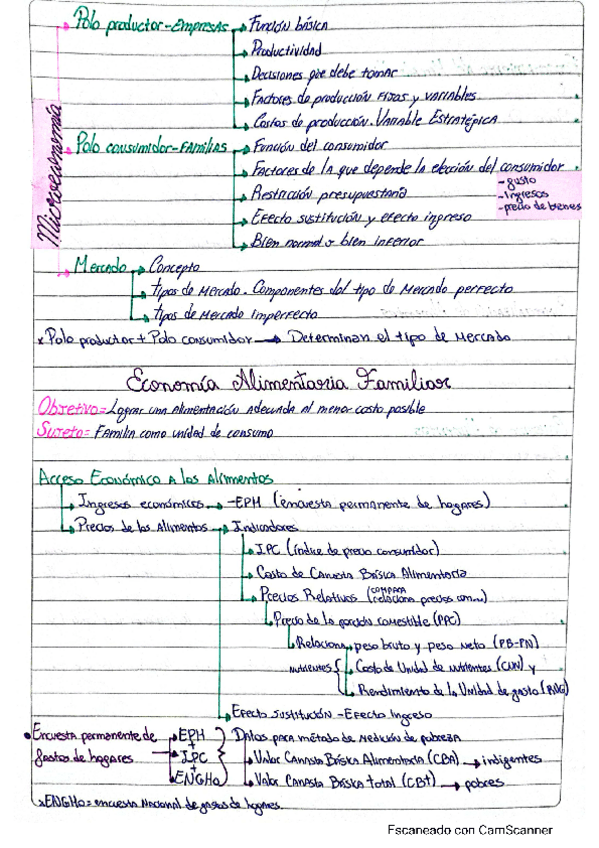 Microeconomía
Polo productor-Empresas → Función básica
→ Productividad
→ Decisiones que debe tomar
→ Factores de producción fijos y variables
→ Costos de producción. Variable Estratégica
Polo consumidor-Familias → Función del consumidor
→ Factores de la que depende la elección del consumidor
- gusto
- Ingresos
- precio de bienes
→ Restricción presupuestaria
→ Efecto sustitución y efecto ingreso
→ Bien normal o bien inferior
Mercado → Concepto
→ Tipos de Mercado. Componentes del tipo de Mercado perfecto
→ Tipos de Mercado Imperfecto
x Polo productor + Polo consumidor → Determinan el tipo de Mercado
Economía Alimentaria Familiar
Objetivo = Lograr una alimentación adecuada al menor costo posible
Sujeto = Familia como unidad de consumo
Acceso Económico a los Alimentos
→ Ingresos económicos → -EPH (encuesta permanente de hogares)
→ Precios de los Alimentos → Indicadores
→ IPC (índice de precio consumidor)
→ Costo de Canasta Básica Alimentaria
→ Precios Relativos (compara relaciona precios con...)
→ Precio de la porción comestible (PPC)
→ Relaciona peso bruto y peso neto (PB-PN)
nutrientes { → Costo de Unidad de nutrientes (CUN) y
→ Rendimiento de la Unidad de gasto (RUG)
→ Efecto sustitución - Efecto Ingreso
• Encuesta permanente de → EPH } Datos para método de medición de pobreza
gastos de hogares → + IPC → Valor Canasta Básica Alimentaria (CBA) → indigentes
+ ENGHo → Valor Canasta Básica total (CBt) → pobres
x ENGHo = encuesta Nacional de gastos de hogares.
Escaneado con CamScanner